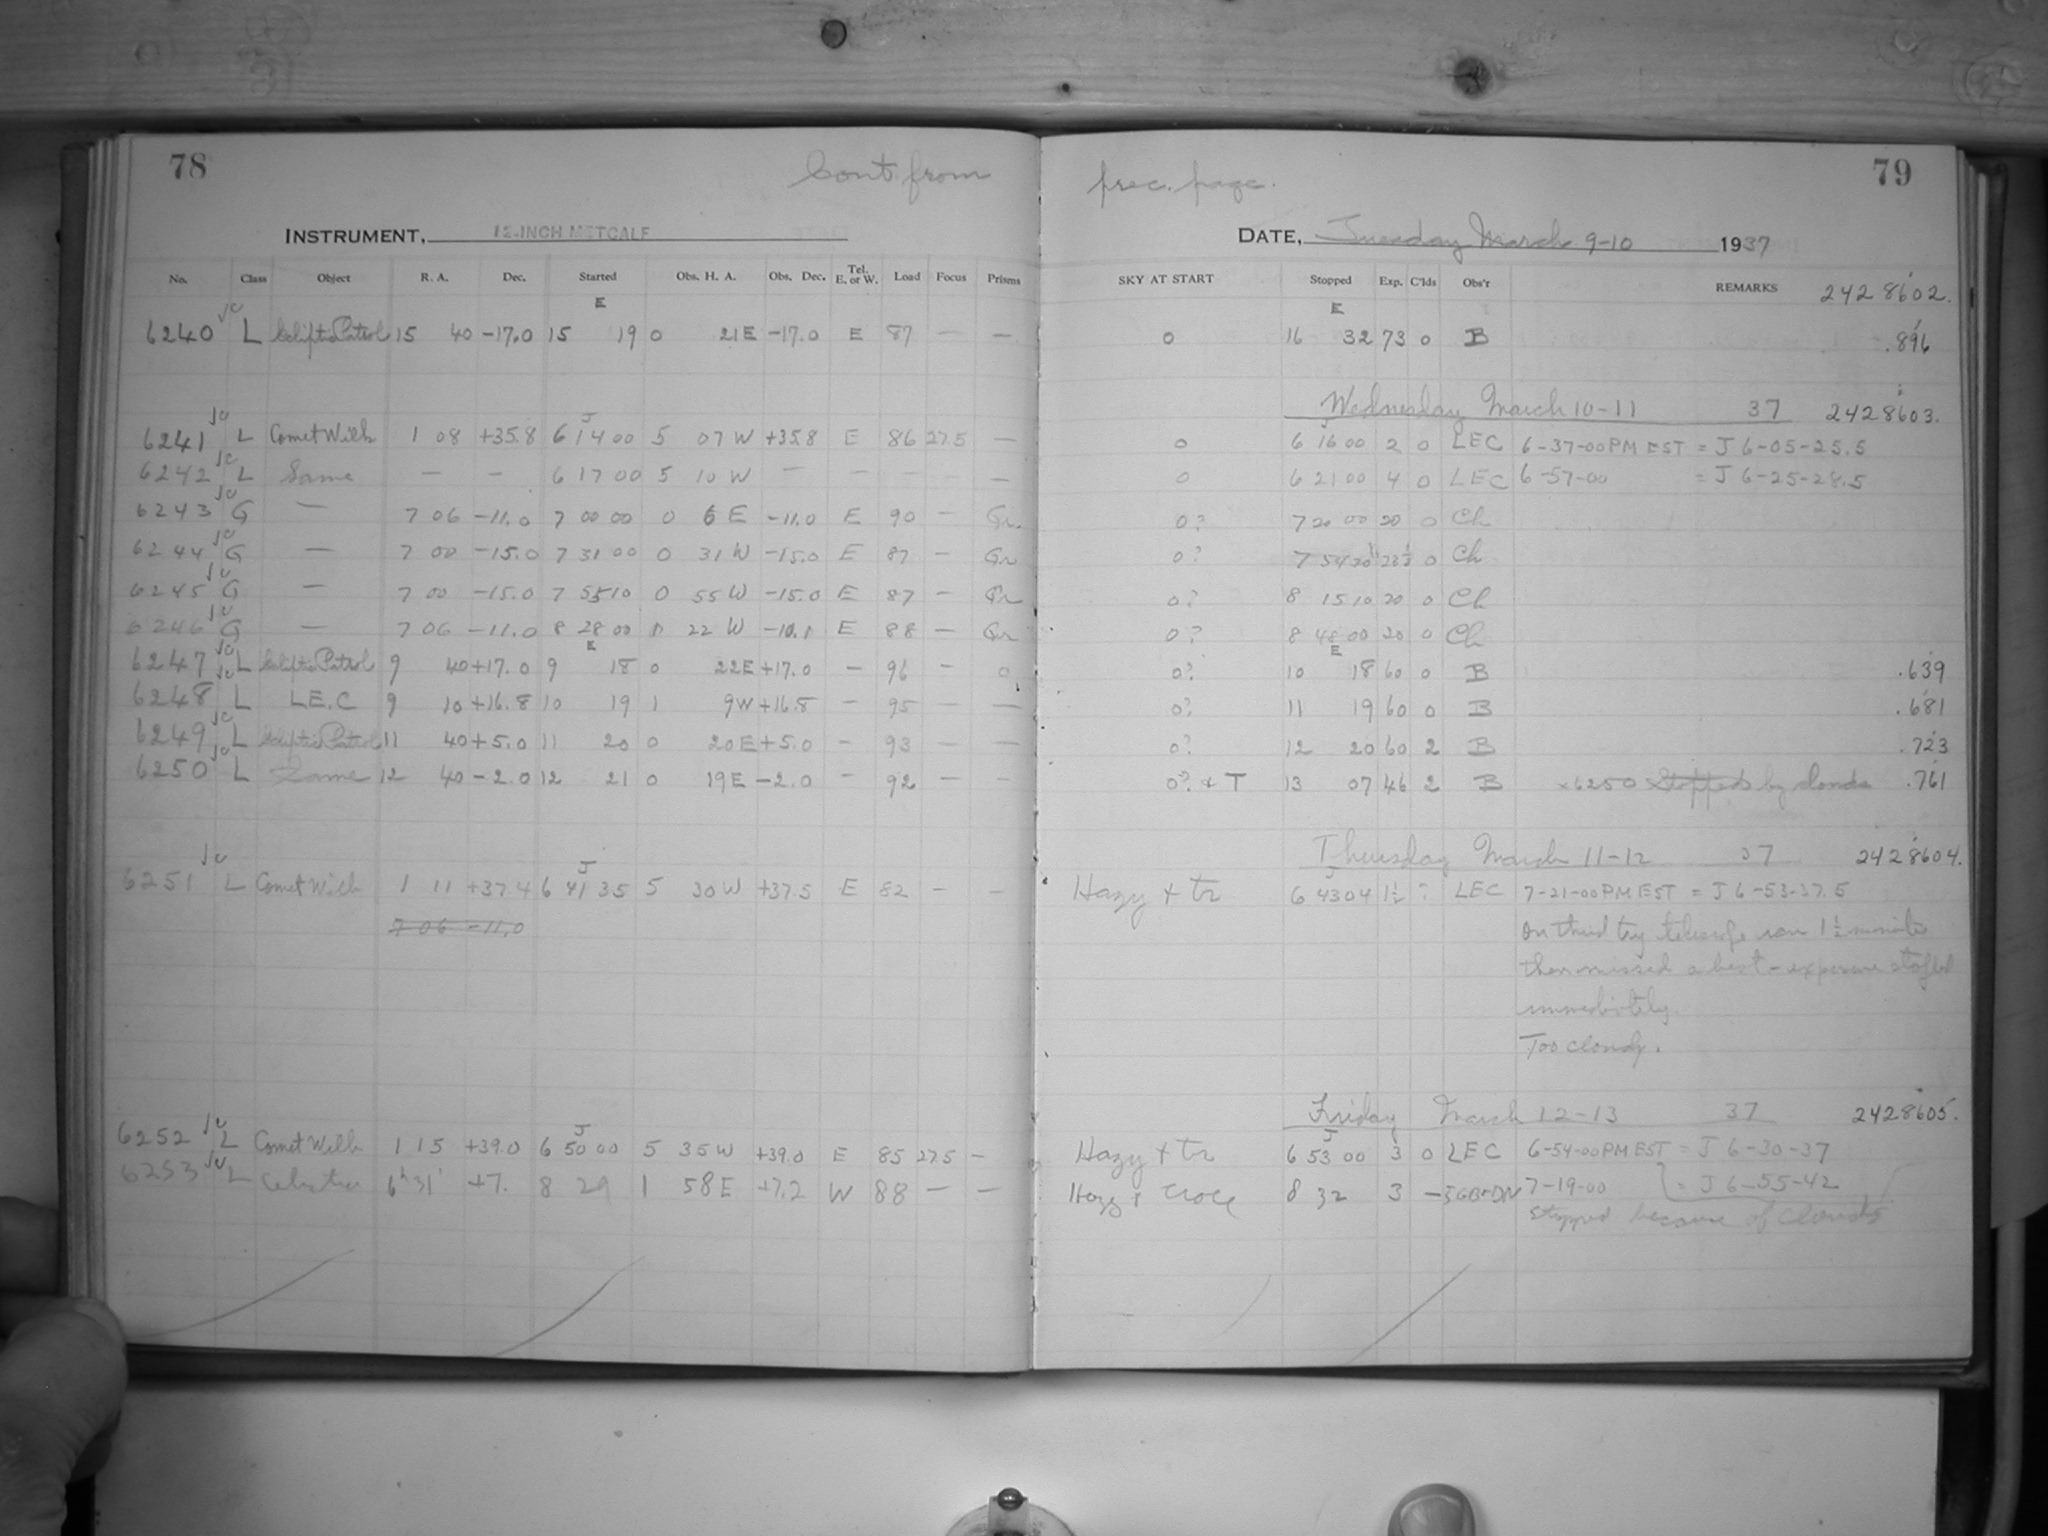 78 Cont from prec. page. 79
INSTRUMENT, 12-INCH METCALF DATE, Tuesday March 9-10 1937
No. Class Object R. A. Dec. Started Obs. H. A. Obs. Dec. Tel. E. or W. Load Focus Prisms SKY AT START Stopped Exp. C'lds Obs'r REMARKS 2428602.
E E
6240 L Ecliptic Patrol 15 40 -17.0 15 19 0 21E -17.0 E 87 — — 0 16 32 73 0 B .896
Wednesday March 10-11 37 2428603.
J J
6241 L Comet Wilk 1 08 +35.8 6 14 00 5 07 W +35.8 E 86 27.5 — 0 6 16 00 2 0 LEC 6-37-00 PM EST = J 6-05-25.5
6242 L Same — — 6 17 00 5 10 W — — — — 0 6 21 00 4 0 LEC 6-57-00 = J 6-25-28.5
6243 G — 7 06 -11.0 7 00 00 0 6 E -11.0 E 90 — Gr. 0? 7 20 00 20 0 Ch
6244 G — 7 00 -15.0 7 31 00 0 31 W -15.0 E 87 — Gr 0? 7 54 20 23⅓ 0 Ch
6245 G — 7 00 -15.0 7 55 10 0 55 W -15.0 E 87 — Gr 0? 8 15 10 20 0 Ch
6246 G — 7 06 -11.0 8 28 00 1 22 W E 88 — Gr 0? 8 48 00 20 0 Ch
E E
6247 L Ecliptic Patrol 9 40 +17.0 9 18 0 22E +17.0 — 96 — 0? 10 18 60 0 B .639
6248 L L.E.C 9 10 +16.8 10 19 1 9W +16.8 — 95 — — 0? 11 19 60 0 B .681
6249 L Ecliptic Patrol 11 40 +5.0 11 20 0 20E +5.0 — 93 — — 0? 12 20 60 2 B .723
6250 L Same 12 40 -2.0 12 21 0 19E -2.0 — 92 — — 0? + T 13 07 46 2 B x6250 Stopped by clouds .761
Thursday March 11-12 37 2428604.
J J
6251 L Comet Wilk 1 11 +37.4 6 41 35 5 30W +37.5 E 82 — — Hazy + tr 6 43 04 1½ ? LEC 7-21-00 PM EST = J 6-53-37.5
7 06 -11.0 On third try telescope ran 1½ minutes
then missed a beat - exposure stopped
immediately.
Too cloudy.
Friday March 12-13 37 2428605.
J J
6252 L Comet Wilk 1 15 +39.0 6 50 00 5 35W +39.0 E 85 27.5 — Hazy + tr 6 53 00 3 0 LEC 6-54-00 PM EST = J 6-30-37
6253 L 6h 31 +7. 8 29 1 58E +7.2 W 88 — — Hazy + 8 32 3 — 7-19-00 = J 6-55-42
Stopped because of clouds